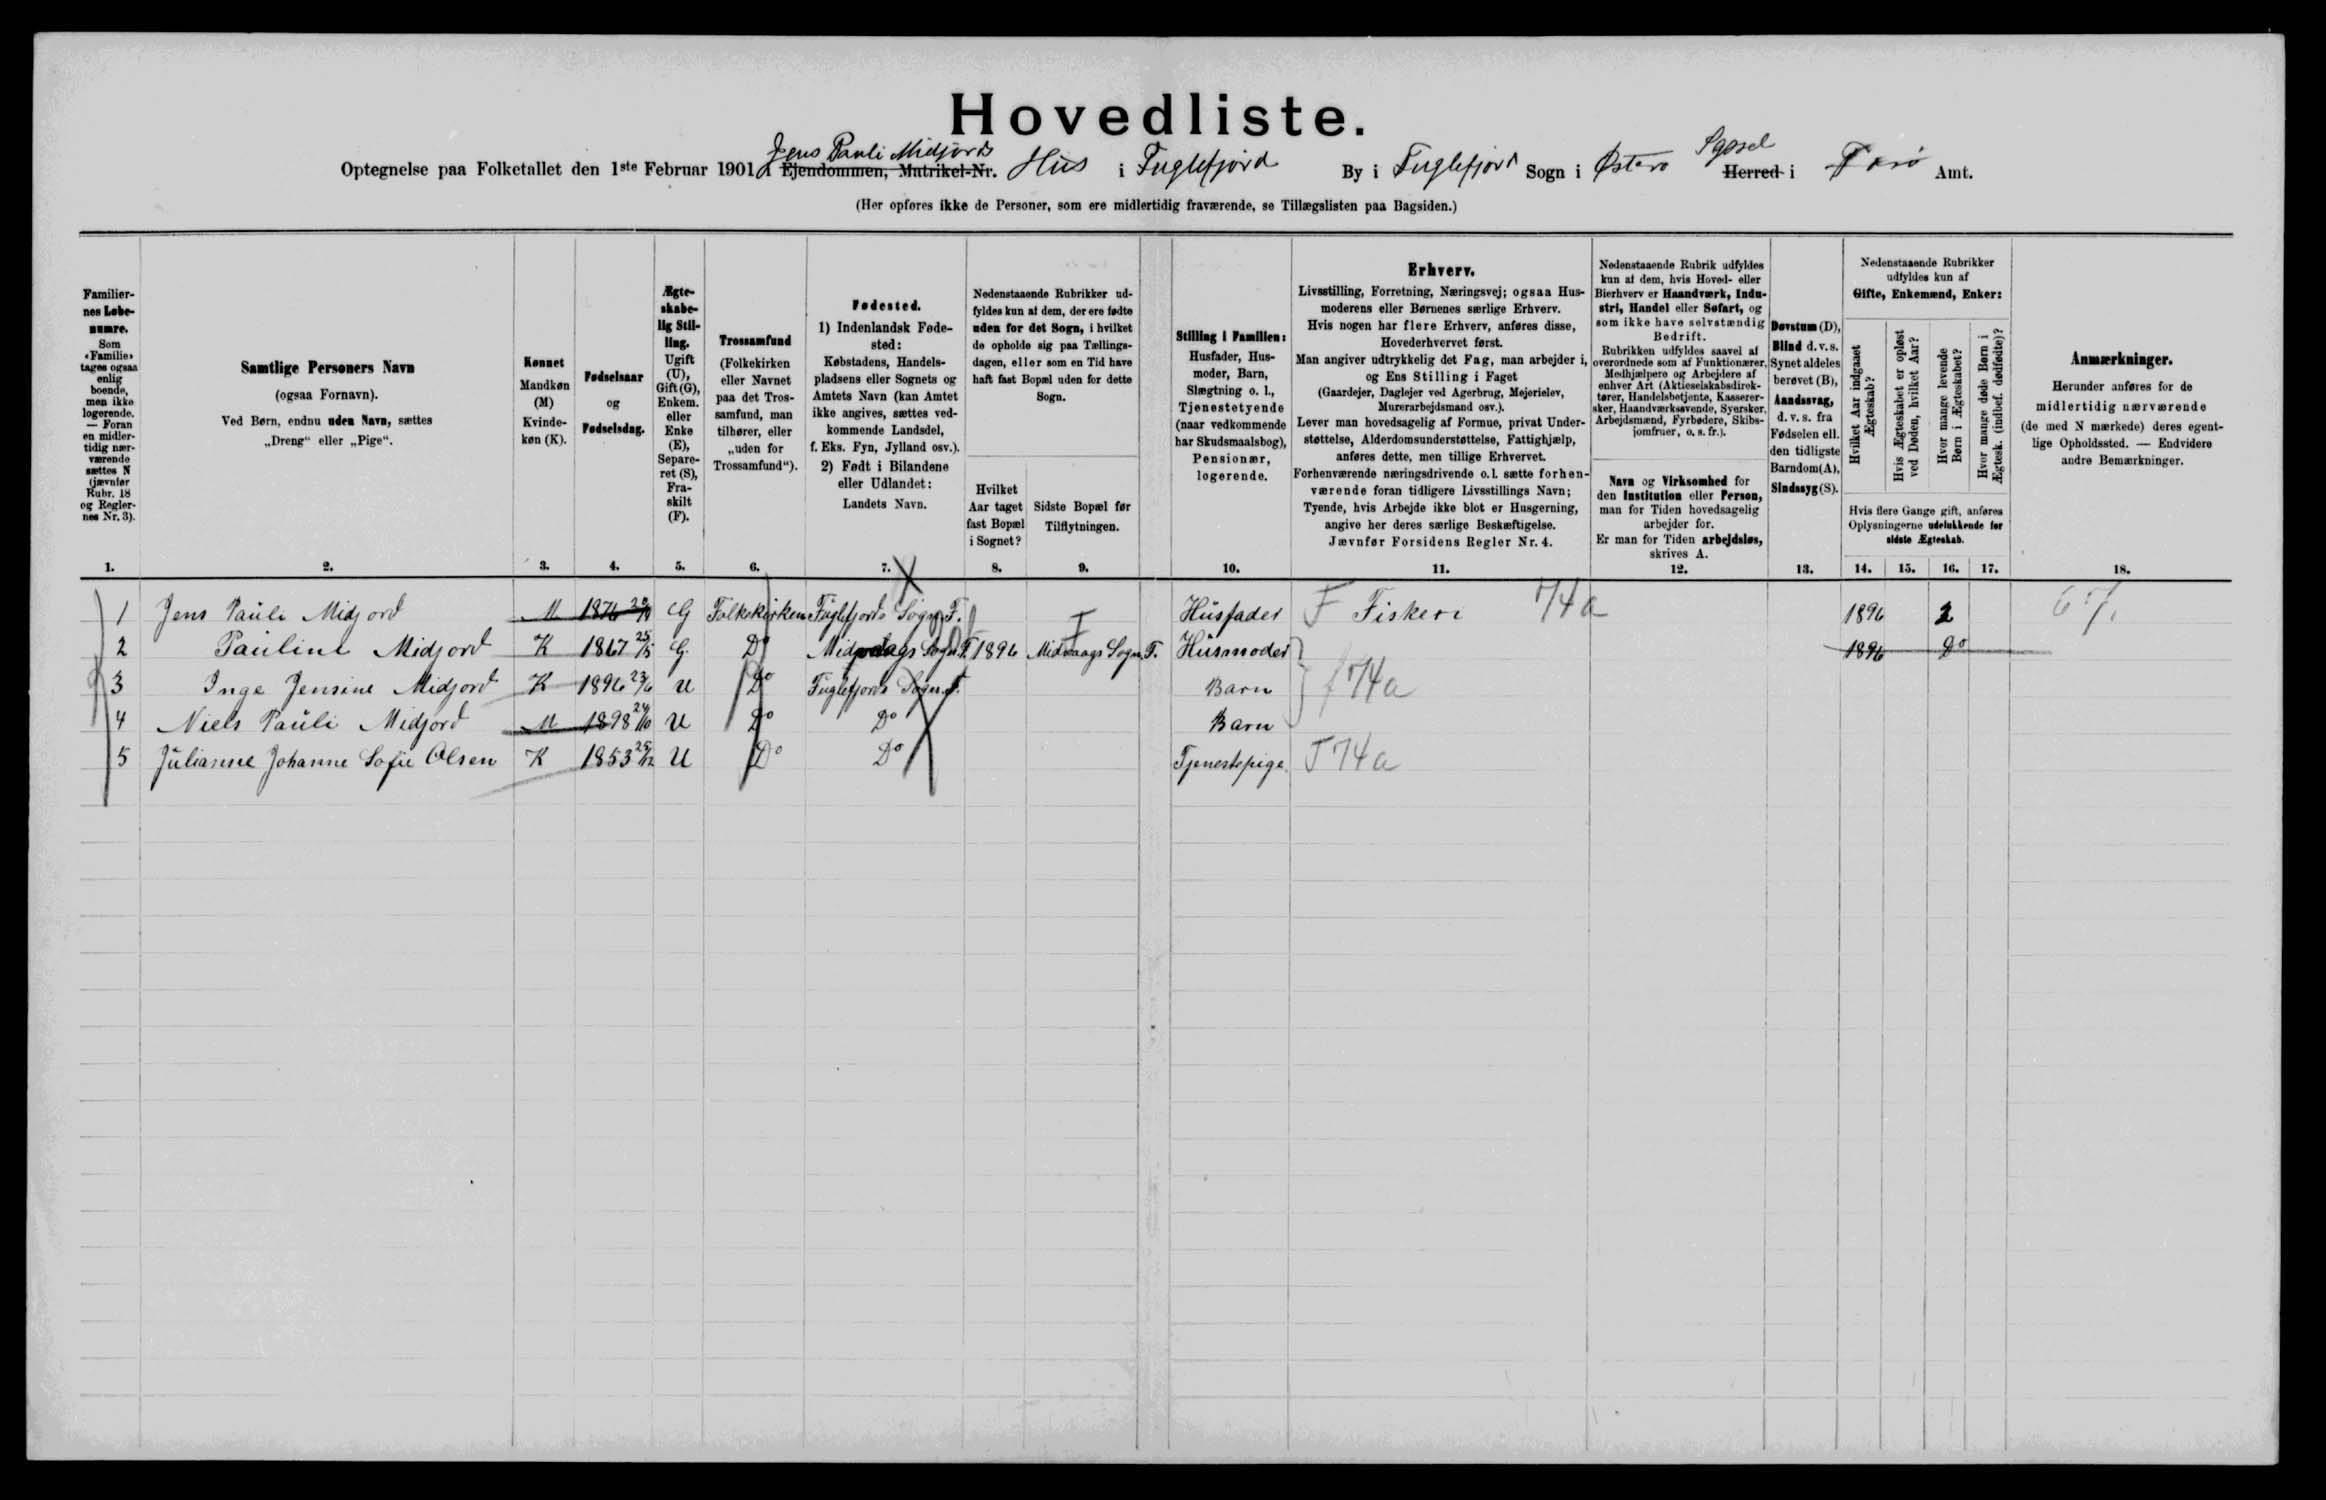 Hovedliste.
Jens Pauli Midjords Syssel
Optegnelse paa Folketallet den 1ste Februar 1901 i Ejendommen, Matrikel-Nr. Hus i Fuglefjord By i Fuglefjord Sogn i Østerø Herred i Færø Amt.
(Her opføres ikke de Personer, som ere midlertidig fraværende, se Tillægslisten paa Bagsiden.)
Familier-
nes Løbe-
numre.
Som
«Familie»
tages ogsaa
enlig
boende,
men ikke
logerende.
— Foran
en midler-
tidig nær-
værende
sættes N
(jævnfør
Rubr. 18
og Regler-
nes Nr. 3).
1.
Samtlige Personers Navn
(ogsaa Fornavn).
Ved Børn, endnu uden Navn, sættes
„Dreng“ eller „Pige“.
2.
Kønnet
Mandkøn
(M)
Kvinde-
køn (K).
3.
Fødselsaar
og
Fødselsdag.
4.
Ægte-
skabe-
lig Stil-
ling.
Ugift
(U),
Gift (G),
Enkem.
eller
Enke
(E),
Separe-
ret (S),
Fra-
skilt
(F).
5.
Trossamfund
(Folkekirken
eller Navnet
paa det Tros-
samfund, man
tilhører, eller
„uden for
Trossamfund“).
6.
Fødested.
1) Indenlandsk Føde-
sted:
Købstadens, Handels-
pladsens eller Sognets og
Amtets Navn (kan Amtet
ikke angives, sættes ved-
kommende Landsdel,
f. Eks. Fyn, Jylland osv.).
2) Født i Bilandene
eller Udlandet:
Landets Navn.
7.
Nedenstaaende Rubrikker ud-
fyldes kun af dem, der ere fødte
uden for det Sogn, i hvilket
de opholde sig paa Tællings-
dagen, eller som en Tid have
haft fast Bopæl uden for dette
Sogn.
Hvilket
Aar taget
fast Bopæl
i Sognet?
8.
Sidste Bopæl før
Tilflytningen.
9.
Stilling i Familien:
Husfader, Hus-
moder, Barn,
Slægtning o. l.,
Tjenestetyende
(naar vedkommende
har Skudsmaalsbog),
Pensionær,
logerende.
10.
Erhverv.
Livsstilling, Forretning, Næringsvej; ogsaa Hus-
moderens eller Børnenes særlige Erhverv.
Hvis nogen har flere Erhverv, anføres disse,
Hovederhvervet først.
Man angiver udtrykkelig det Fag, man arbejder i,
og Ens Stilling i Faget
(Gaardejer, Daglejer ved Agerbrug, Mejerielev,
Murerarbejdsmand osv.).
Lever man hovedsagelig af Formue, privat Under-
støttelse, Alderdomsunderstøttelse, Fattighjælp,
anføres dette, men tillige Erhvervet.
Forhenværende næringsdrivende o. l. sætte forhen-
værende foran tidligere Livsstillings Navn;
Tyende, hvis Arbejde ikke blot er Husgerning,
angive her deres særlige Beskæftigelse.
Jævnfør Forsidens Regler Nr. 4.
11.
Nedenstaaende Rubrik udfyldes
kun af dem, hvis Hoved- eller
Bierhverv er Haandværk, Indu-
stri, Handel eller Søfart, og
som ikke have selvstændig
Bedrift.
Rubrikken udfyldes saavel af
overordnede som af Funktionærer,
Medhjælpere og Arbejdere af
enhver Art (Aktieselskabsdirek-
tører, Handelsbetjente, Kasserer-
sker, Haandværksøvende, Syersker,
Arbejdsmænd, Fyrbødere, Skibs-
jomfruer, o. s. fr.).
Navn og Virksomhed for
den Institution eller Person,
man for Tiden hovedsagelig
arbejder for.
Er man for Tiden arbejdsløs,
skrives A.
12.
Døvstum (D),
Blind d. v. s.
Synet aldeles
berøvet (B),
Aandssvag,
d. v. s. fra
Fødselen ell.
den tidligste
Barndom (A),
Sindssyg (S).
13.
Nedenstaaende Rubrikker
udfyldes kun af
Gifte, Enkemænd, Enker:
Hvilket Aar indgaaet
Ægteskab?
Hvis Ægteskabet er opløst
ved Døden, hvilket Aar?
Hvor mange levende
Børn i Ægteskabet?
Hvor mange døde Børn i
Ægtesk. (indbef. dødfødte)?
Hvis flere Gange gift, anføres
Oplysningerne udelukkende for
sidste Ægteskab.
14. 15. 16. 17.
Anmærkninger.
Herunder anføres for de
midlertidig nærværende
(de med N mærkede) deres egent-
lige Opholdssted. — Endvidere
andre Bemærkninger.
18.
1 Jens Pauli Midjord M 1874 G Folkekirken Fuglefjords Sogn F. Husfader F Fiskeri 74a 1896 2
2 Pauline Midjord K 1867 25/5 G. Do Midvaags Sogn F. 1896 Midvaags Sogn F. Husmoder 1896 Do
3 Inge Jensine Midjord K 1896 23/6 U Do Fuglefjords Sogn F. Barn f 74a
4 Niels Pauli Midjord M 1898 24/10 U Do Do Barn
5 Julianne Johanne Sofie Olsen K 1853 25/12 U Do Do Tjenestepige. T 74a